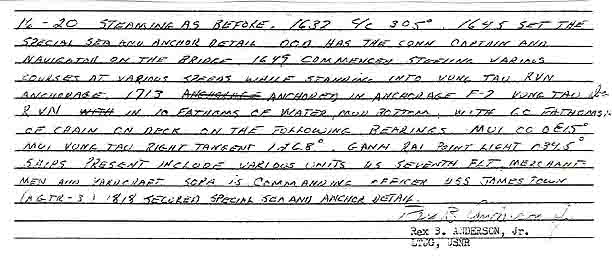 16-20 STEAMING AS BEFORE. 1637 C/C 305°. 1645 SET THE
SPECIAL SEA AND ANCHOR DETAIL OOD HAS THE CONN CAPTAIN AND
NAVIGATOR ON THE BRIDGE 1649 COMMENCED STEERING VARIOUS
COURSES AT VARIOUS SPEEDS WHILE STANDING INTO VUNG TAU RVN
ANCHORAGE. 1713 ANCHORED IN ANCHORAGE F-7 VUNG TAU
RVN WITH IN 10 FATHOMS OF WATER, MUD BOTTOM, WITH 60 FATHOMS
OF CHAIN ON DECK ON THE FOLLOWING BEARINGS MUI
MUI VUNG TAU RIGHT TANGENT GANH RAI POINT LIGHT
SHIPS PRESENT INCLUDE VARIOUS UNITS US SEVENTH FLT, MERCHANT-
MEN AND YARDCRAFT SOPA IS COMMANDING OFFICER USS JAMESTOWN
(AGTR-3) 1818 SECURED SPECIAL SEA AND ANCHOR DETAIL.
Rex B. Anderson Jr.
Rex B. ANDERSON, Jr.
LTJG, USNR